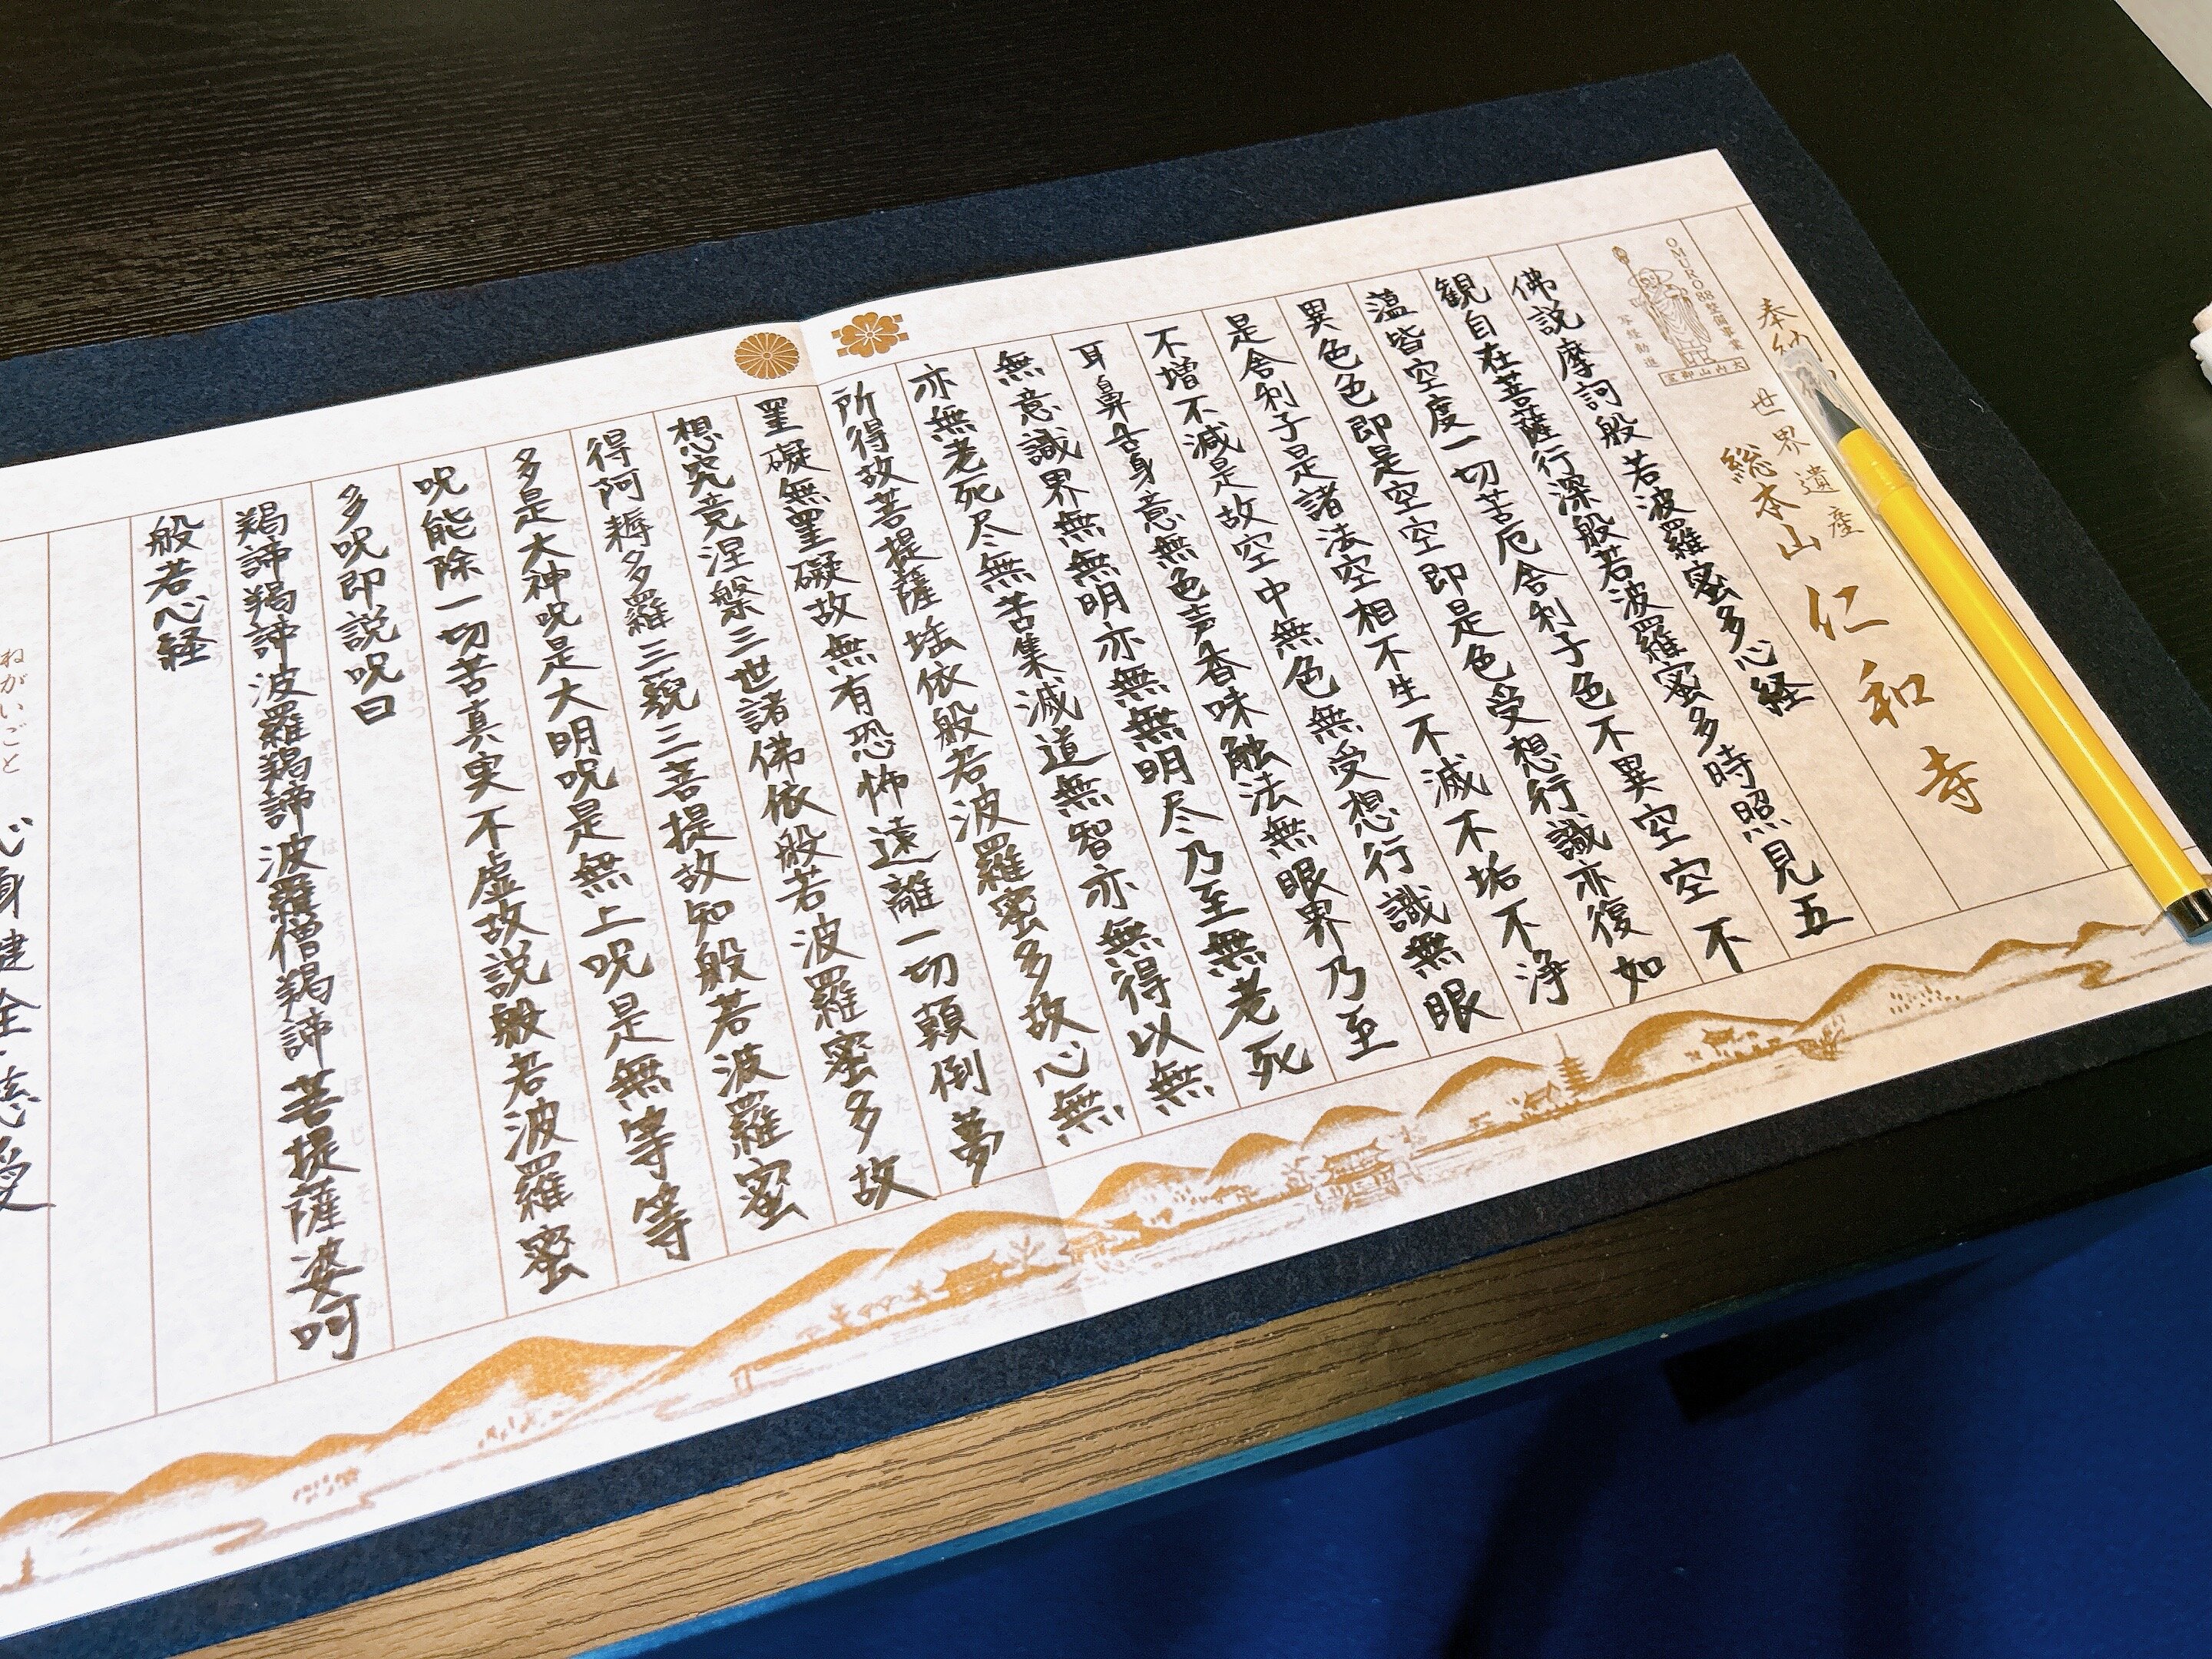 奉納 世界遺産
総本山 仁和寺
OMURO88整備事業
写経勧進
大内山御室
佛説摩訶般若波羅蜜多心経
観自在菩薩行深般若波羅蜜多時照見五
蘊皆空度一切苦厄舎利子色不異空空不
異色色即是空空即是色受想行識亦復如
是舎利子是諸法空相不生不滅不垢不浄
不増不減是故空中無色無受想行識無眼
耳鼻舌身意無色声香味触法無眼界乃至
無意識界無無明亦無無明尽乃至無老死
亦無老死尽無苦集滅道無智亦無得以無
所得故菩提薩埵依般若波羅蜜多故心無
罣礙無罣礙故無有恐怖遠離一切顛倒夢
想究竟涅槃三世諸佛依般若波羅蜜多故
得阿耨多羅三藐三菩提故知般若波羅蜜
多是大神呪是大明呪是無上呪是無等等
呪能除一切苦真実不虚故説般若波羅蜜
多呪即説呪曰
羯諦羯諦波羅羯諦波羅僧羯諦菩提薩婆呵
般若心経
ねがいごと
心身健全